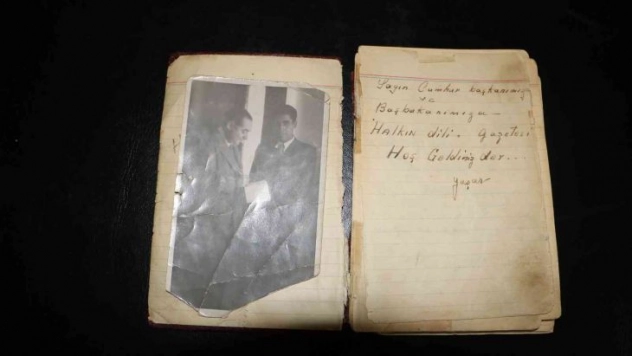 Sayın Cumhur başkanımız
ve
Başbakanımıza -
Halkın dili. gazetesi
Hoş Geldiniz der...